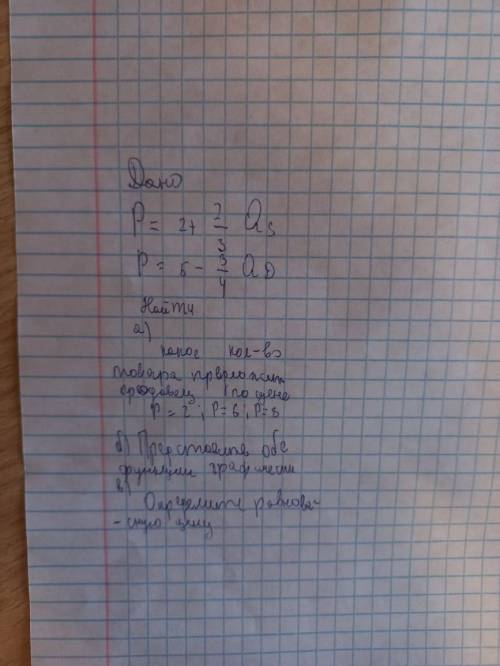 Дано
P = 2+ 2/3 Qs
P = 5 - 3/4 QD
Найти
а)
какое кол-во
товара предложит
продавец по цене
P = 2 ; P = 6 ; P = 8
б) Представьте обе
функции графически
в)
Определите равнове-
-сную цену